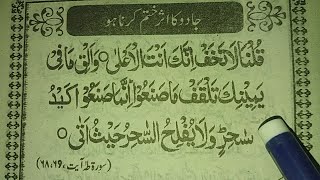 جادو کا اثر ختم کرنا ہو
قُلْنَا لَا تَخَفْ اِنَّكَ اَنْتَ الْاَعْلٰى ۝ وَاَلْقِ مَا فِیْ
یَمِیْنِكَ تَلْقَفْ مَا صَنَعُوْا اِنَّمَا صَنَعُوْا كَیْدُ
سٰحِرٍ وَلَا یُفْلِحُ السَّاحِرُ حَیْثُ اَتٰى ۝
(سورۃ طہٰ آیت، ۶۸،۶۹)